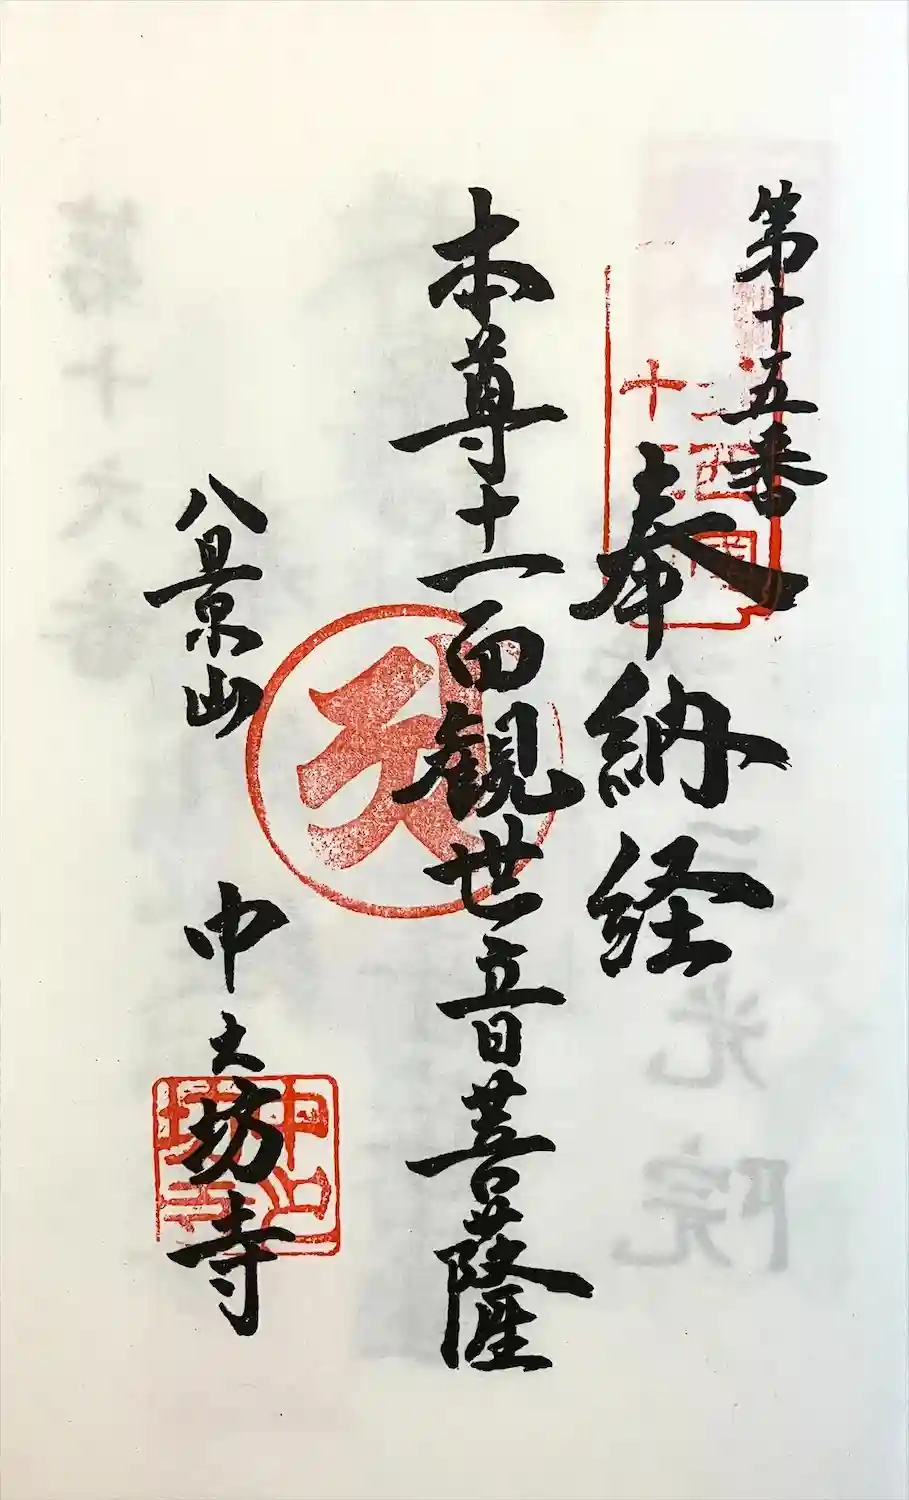 第十五番
奉納経
本尊十一面観世音菩薩
八景山
中坊寺